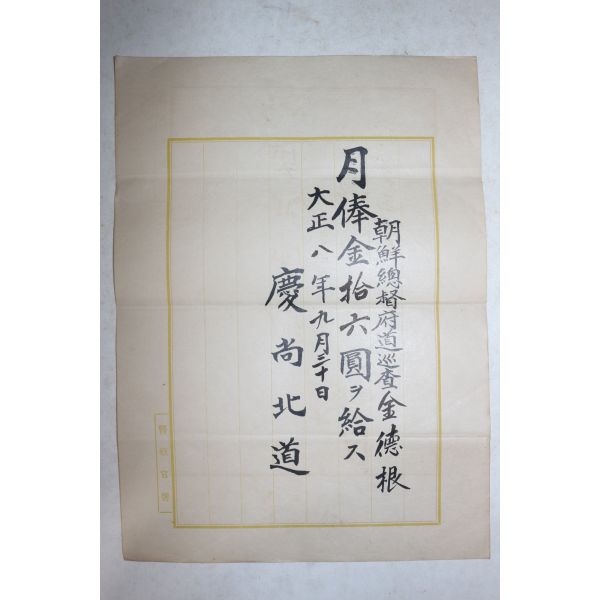 朝鮮總督府道巡査金德根
月俸金拾六圓ヲ給ス
大正八年九月三十日
慶尚北道